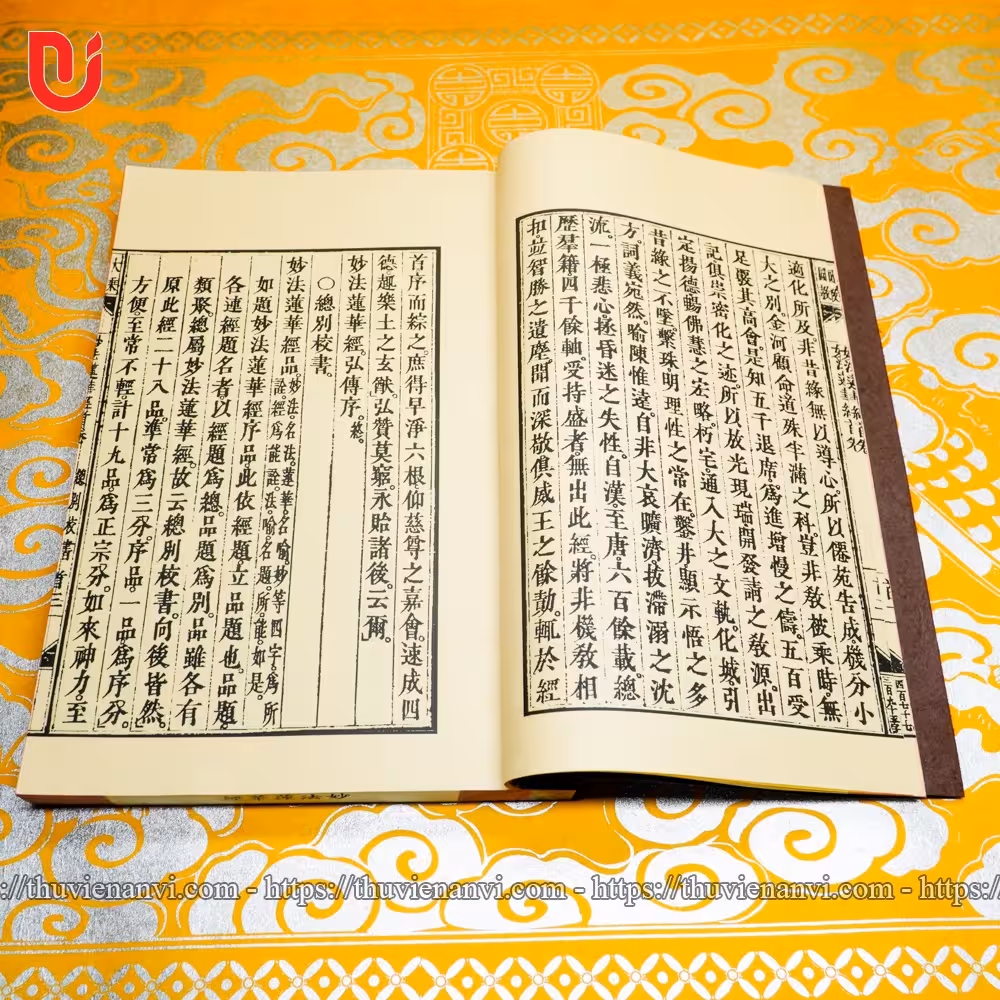 適化所及。非昔緣無以導心。所以僊苑告成。機分小
大之別。金河顧命。道殊半滿之科。豈非敎被乘時。無
足覈其高會。是知五千退席。爲進增慢之儔。五百受
記。俱崇密化之迹。所以放光現瑞。開發請之敎源。出
定揚德。暢佛慧之宏略。朽宅通入大之文軌。化城引
昔緣之不墜。繫珠明理性之常在。鑿井顯示悟之多
方。詞義宛然。喻陳惟遠。自非大哀曠濟。拔滯溺之沈
流。一極悲心。拯昏迷之失性。自漢至唐。六百餘載。總
歷羣籍。四千餘軸。受持盛者。無出此經。將非機敎相
扣。竝智勝之遺塵。聞而深敬。俱威王之餘勣。輒於經
首序而綜之。庶得早淨六根。仰慈尊之嘉會。速成四
德。趣樂土之玄猷。弘贊莫窮。永貽諸後。云爾。
妙法蓮華經弘傳序終
〇總別校書。
妙法蓮華經品。妙法。名法。蓮華。名喻。妙等四字。爲所
詮。經。爲能詮。法。喻。名。題。所。能。如是。
如題妙法蓮華經序品。此依經題。立品題也。品題
各連經題名者。以經題爲總。品題爲別。品雖各有
類聚。總屬妙法蓮華經。故云總別校書。向後皆然。
原此經二十八品。準常爲三分。序品。一品。爲序分。
方便。至常不輕。計十九品。爲正宗分。如來神力。至
https://thuvienanvi.com - https://thuvienanvi.com - https://thuvienanvi.com